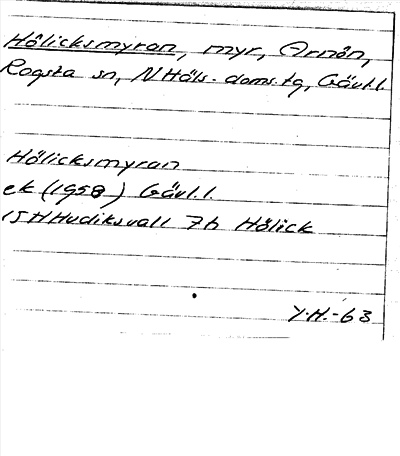 Hölicksmyran, myr, Arnön,
Rogsta sn, N Häls. doms.tg, Gävl.l.
Hölicksmyran
ek (1958) Gävl.l.
15H Hudiksvall 7h Hölick
Y.H.-63